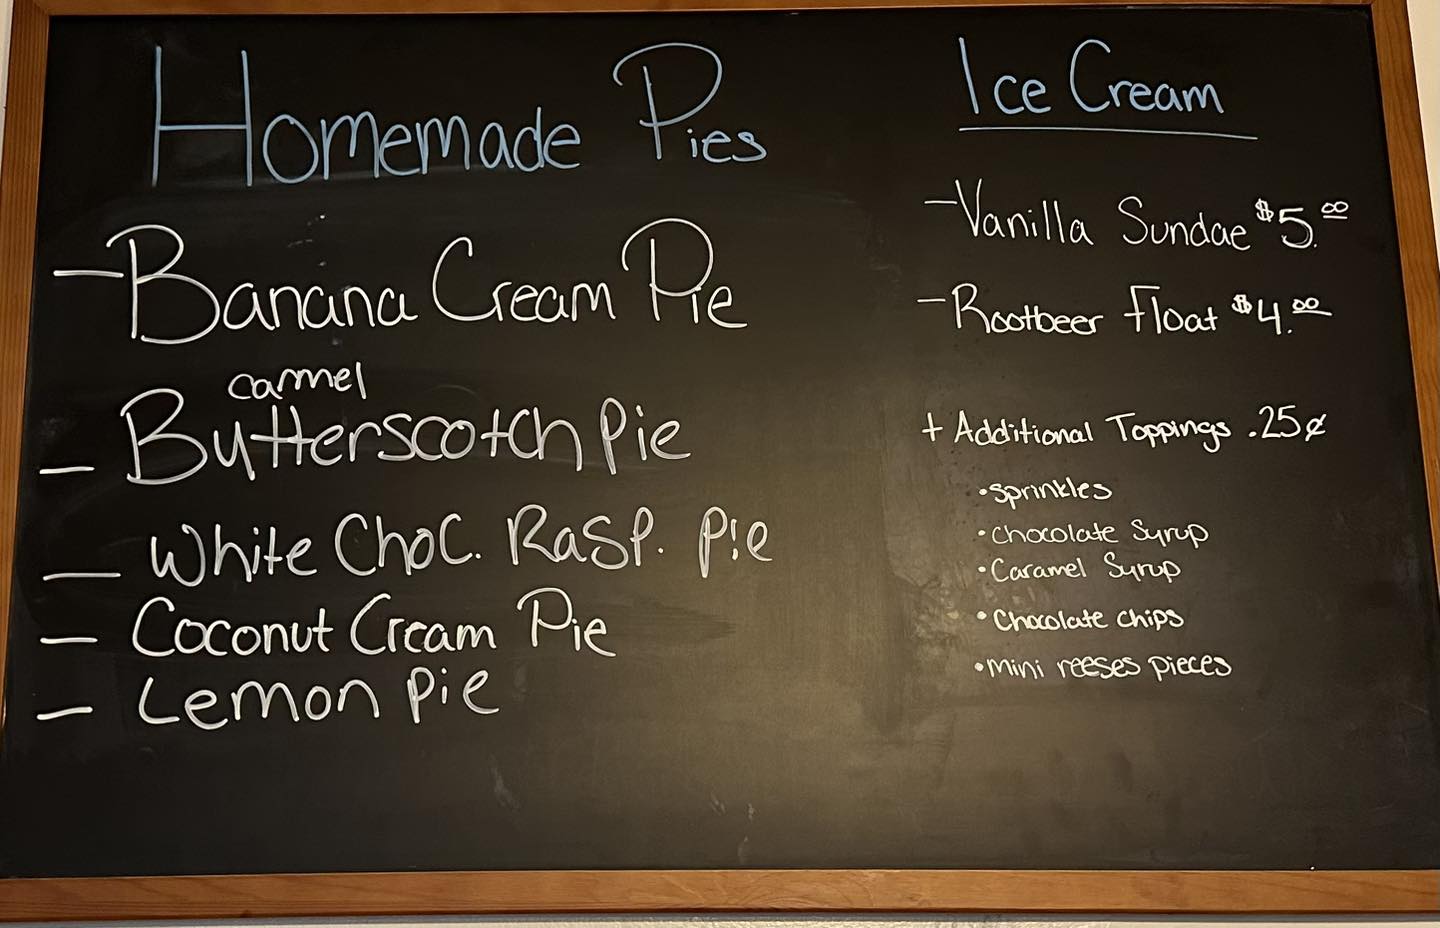 Homemade Pies
- Banana Cream Pie
carmel
- Butterscotch Pie
- White Choc. Rasp. Pie
- Coconut Cream Pie
- Lemon Pie
Ice Cream
- Vanilla Sundae $5.00
- Rootbeer Float $4.00
+ Additional Toppings .25¢
• sprinkles
• Chocolate Syrup
• Caramel Syrup
• Chocolate chips
• mini reeses pieces